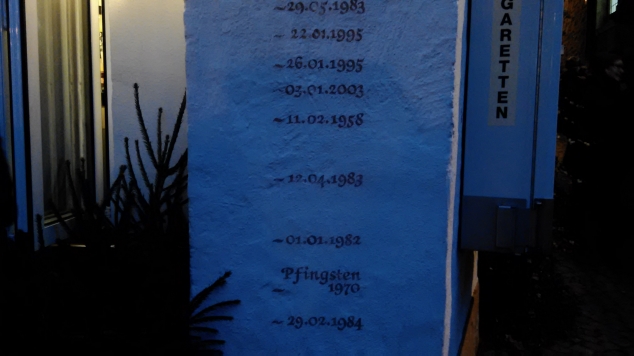 ~29.05.1983
~22.01.1995
~26.01.1995
~03.01.2003
~11.02.1958
~12.04.1983
~01.01.1982
Pfingsten
~ 1970
~29.02.1984
GARETTEN